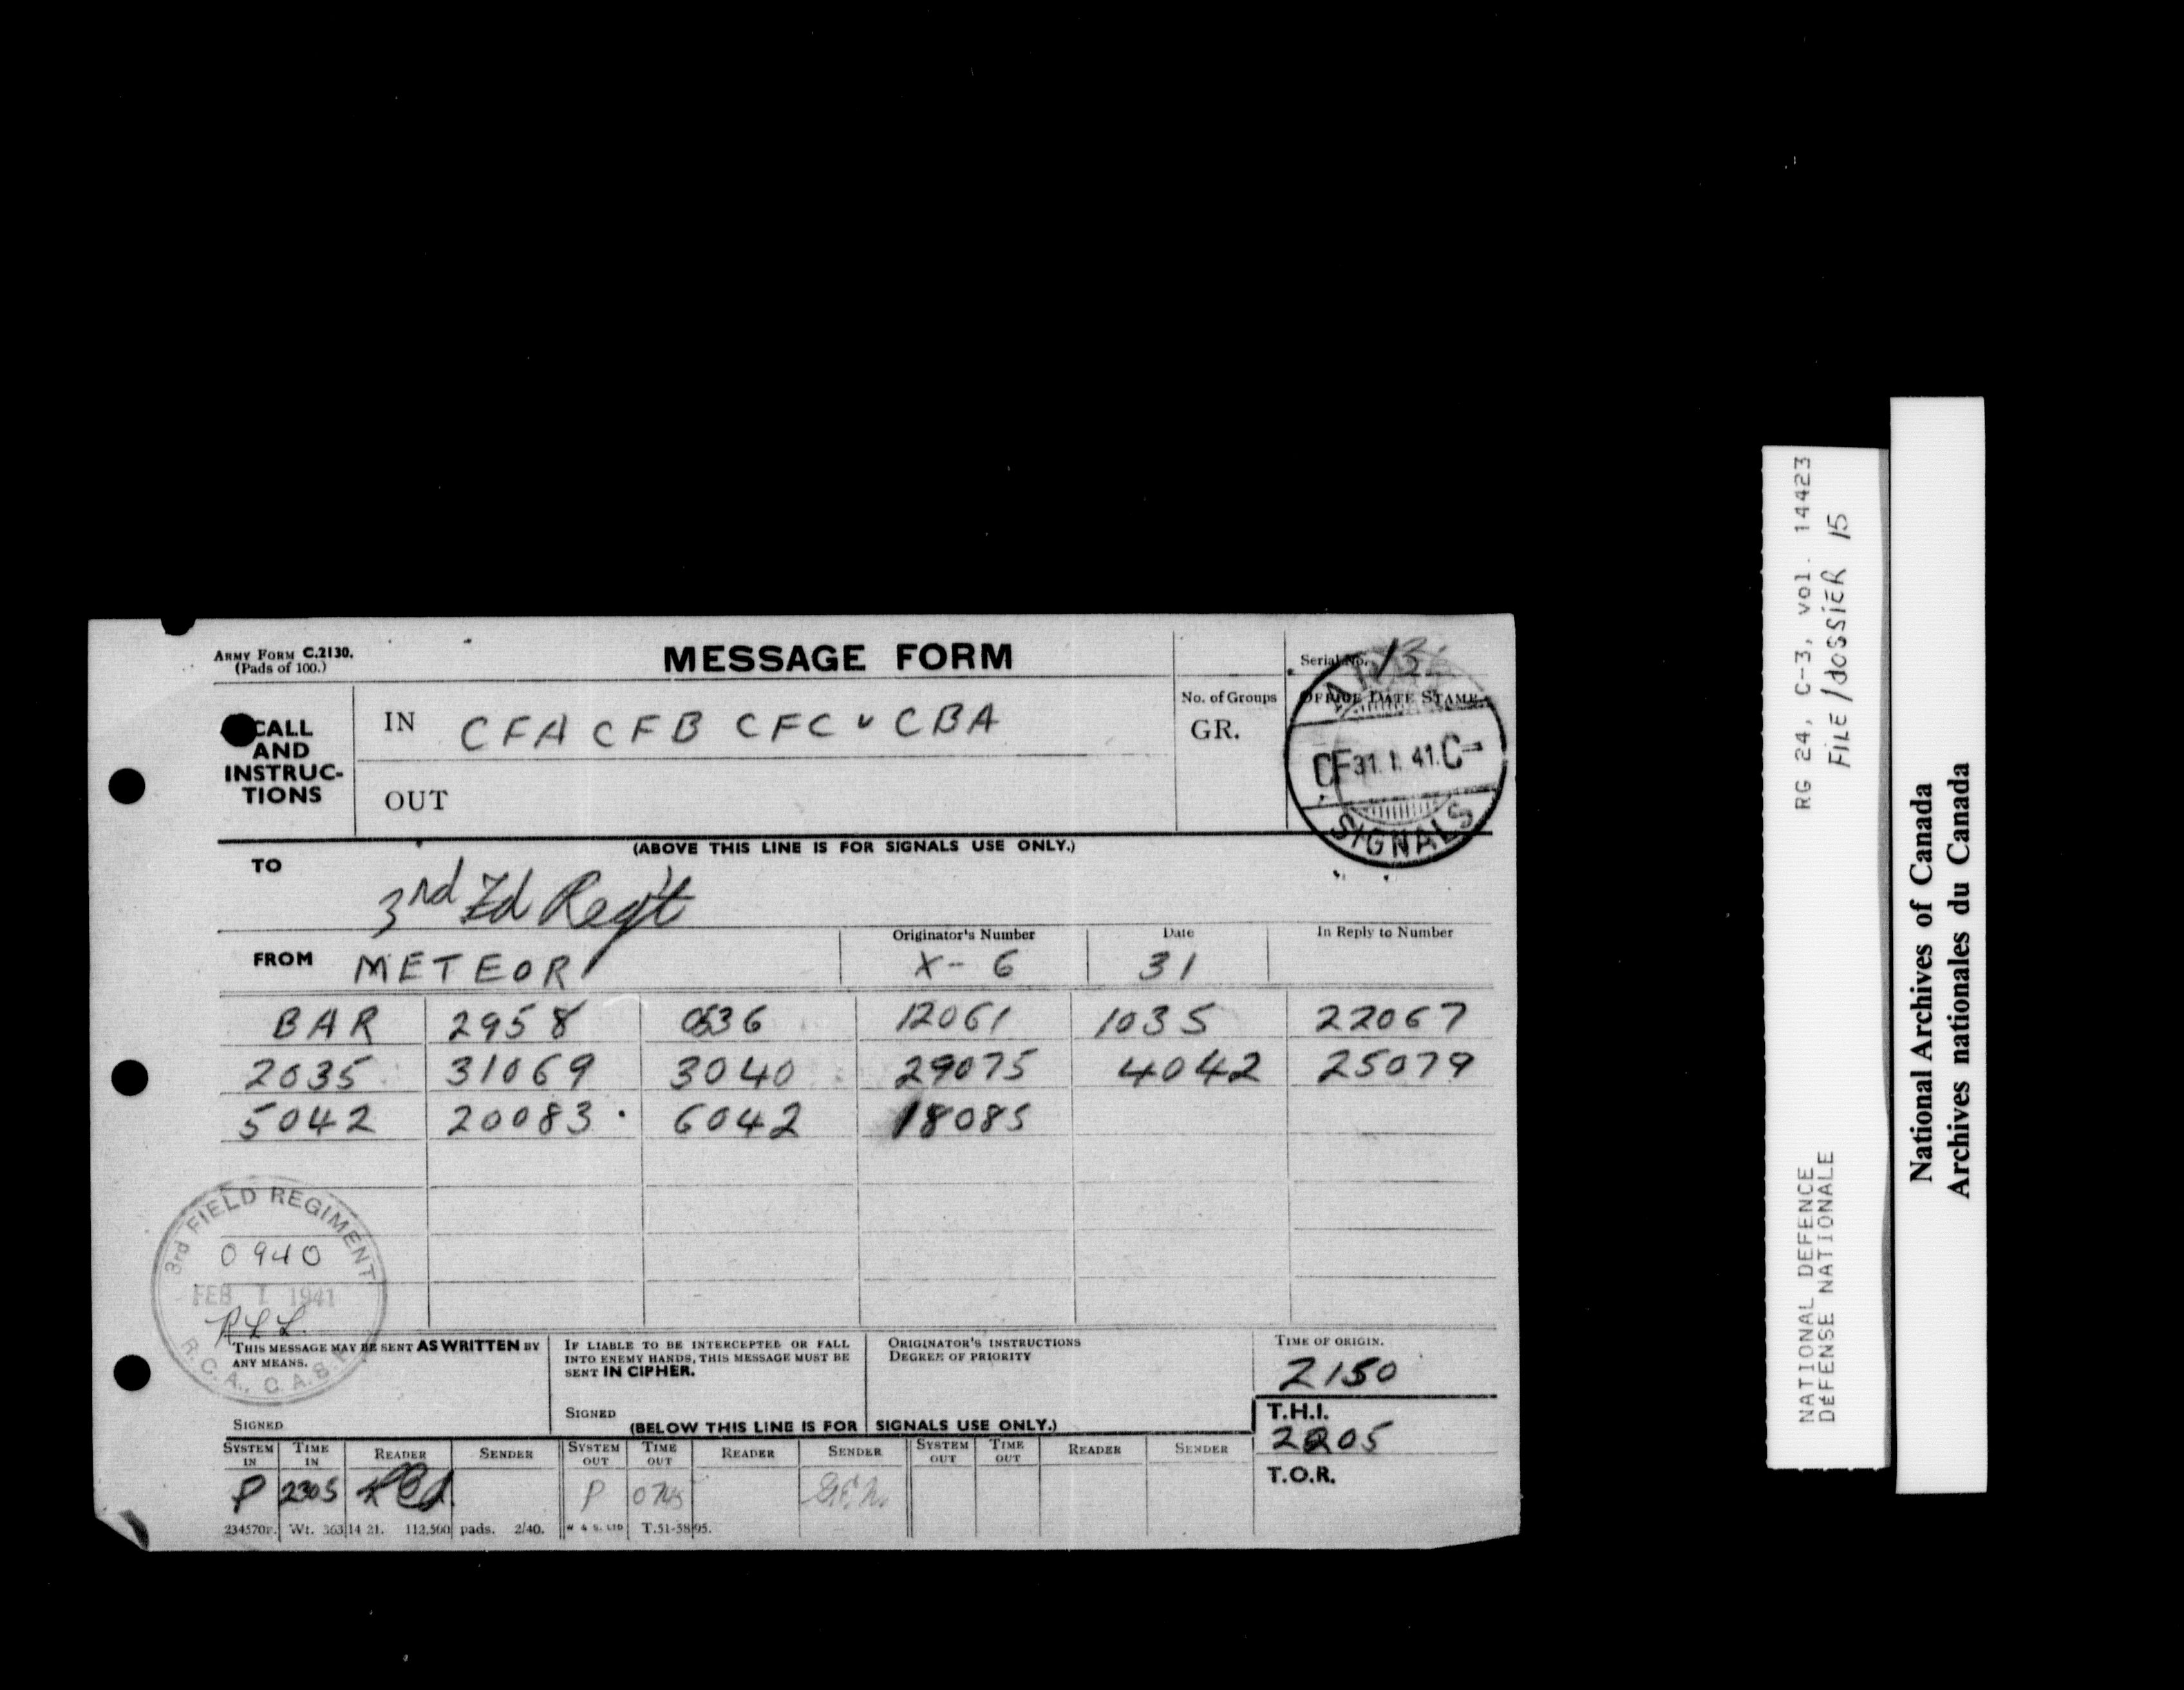 ARMY FORM C.2130.
(Pads of 100.)
MESSAGE FORM
Serial No. 13
CALL AND INSTRUC- TIONS
IN CFA CFB CFC v CBA
No. of Groups
GR.
OFFICE DATE STAMP
CF 31. 1. 41. C
SIGNALS
OUT
(ABOVE THIS LINE IS FOR SIGNALS USE ONLY.)
TO 3rd Fd Reg't
FROM METEOR
Originator's Number X- 6
Date 31
In Reply to Number
BAR 2958 0636 12061 1035 22067
2035 31069 3040 29075 4042 25079
5042 20083. 6042 18085
3rd FIELD REGIMENT
0940
FEB 1 1941
R.C.A., C.A.S.F.
THIS MESSAGE MAY BE SENT AS WRITTEN BY ANY MEANS.
SIGNED
IF LIABLE TO BE INTERCEPTED OR FALL INTO ENEMY HANDS, THIS MESSAGE MUST BE SENT IN CIPHER.
SIGNED
ORIGINATOR'S INSTRUCTIONS
DEGREE OF PRIORITY
TIME OF ORIGIN.
2150
(BELOW THIS LINE IS FOR SIGNALS USE ONLY.)
T.H.I.
2205
T.O.R.
SYSTEM IN TIME IN READER SENDER SYSTEM OUT TIME OUT READER SENDER SYSTEM OUT TIME OUT READER SENDER
P 2305 P 0745
234570r. Wt. 363 14 21. 112,500 pads. 2/40. W & S. LTD T.51-5895.
RG 24, C-3, vol. 14423
FILE/dOSSiER 15
NATIONAL DEFENCE
DéFENSE NATIONALE
National Archives of Canada
Archives nationales du Canada